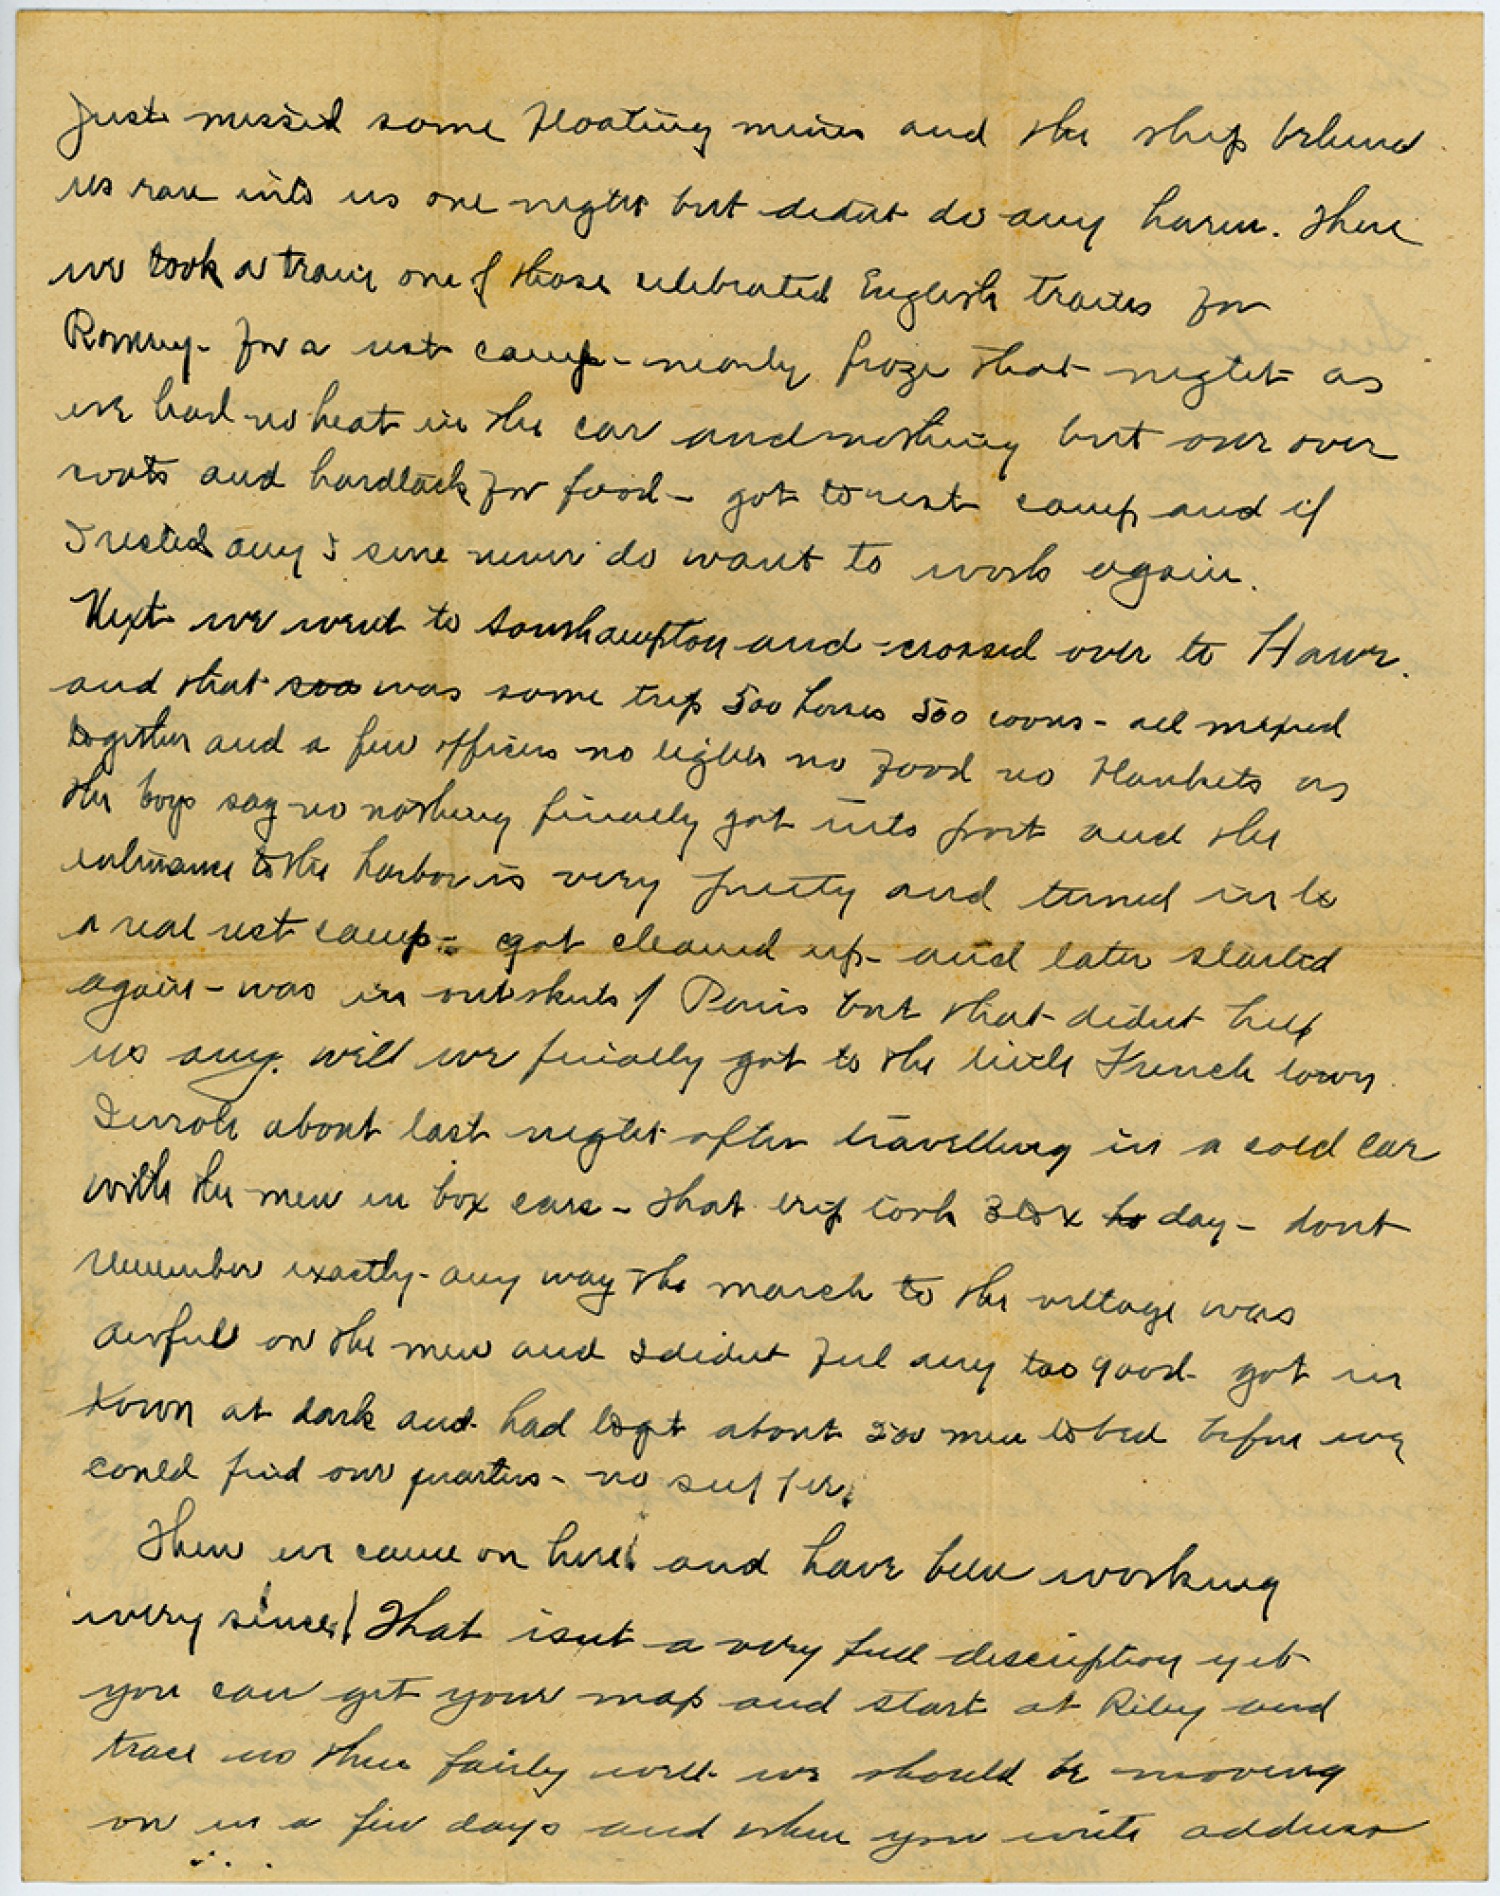 Just missed some floating mines and the ship behind
us ran into us one night but didnt do any harm. Then
we took a train one of those celebrated English trains for
Romsey - for a rest camp - nearly froze that night as
we had no heat in the car and nothing but our over
coats and hardtack for food - got to rest camp and if
I rested any I sure never do want to work again.
Next we went to Southampton and crossed over to Havre.
and that was some trip 500 horses 500 coons - all mixed
together and a few officers no lights no food no blankets as
the boys say no nothing finally got into port and the
entrance to the harbor is very pretty and turned in to
a real rest camp - got cleaned up - and later started
again - was in outskirts of Paris but that didnt help
us any. well we finally got to the little French town
I wrote about last night after travelling in a cold car
with the men in box cars - that trip took 3 days - dont
remember exactly - any way the march to the village was
awful on the men and I didnt feel any too good - got in
town at dark and had to get about 200 men to bed before we
could find our quarters - no supper.
Then we came on here and have been working
every since! That isnt a very full description yet
you can get your map and start at Riley and
trace us then fairly well - we should be moving
on in a few days and when you write address